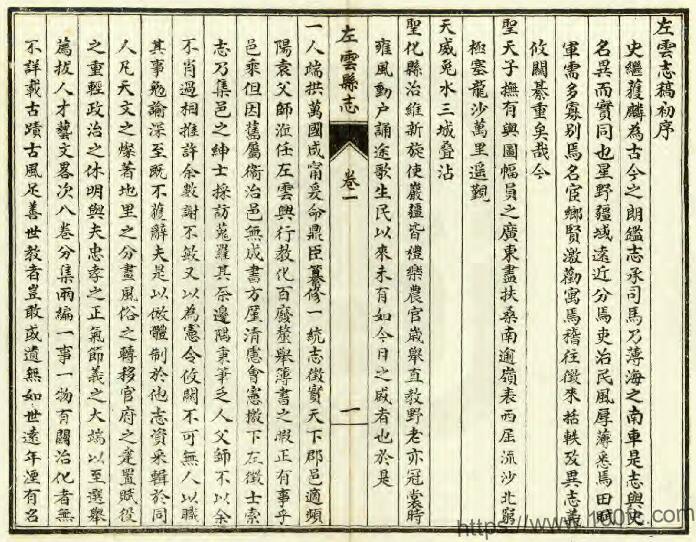 左雲志稿初序
史繼獲麟為古今之朗鑑志承司馬乃薄海之南車是志與史
名異而實同也星野疆域遠近分焉吏治民風厚薄悉焉田賦
軍需多寡別焉名宦鄉賢激勸寓焉稽往徵來括軼攷異志義
攸關綦重矣哉今
聖天子撫有輿圖幅員之廣東盡扶桑南逾嶺表西屆流沙北窮
極塞龍沙萬里遥觐
天威兎水三城叠沾
聖化縣治維新旋使巖疆皆禮樂農官歲舉直教野老亦冠裳時
雍風動户誦途歌生民以來未有如今日之盛者也於是
左雲縣志
卷一
一
一人端拱萬國咸甯爰命鼎臣纂修一統志徵實天下郡邑適頻
陽袁父師涖任左雲興行教化百廢釐舉簿書之暇正有事乎
邑乘但因舊屬衛治邑無成書方厪清慮會憲檄下左徵士索
志乃集邑之紳士採訪蒐羅其奈邊隅秉筆乏人父師不以余
不肖過相推許余數謝不敏又以為憲令攸關不可無人以職
其事勉諭深至既不獲辭夫是以倣體制於他志資采輯於同
人凡天文之燦著地里之分畫風俗之轉移官府之建置賦役
之重輕政治之休明與夫忠孝之正氣節義之大端以至選舉
薦拔人才藝文畧次八卷分集兩編一事一物有關治化者無
不詳載古蹟古風足善世教者豈敢或遺無如世遠年湮有名
https://www.100fz.com